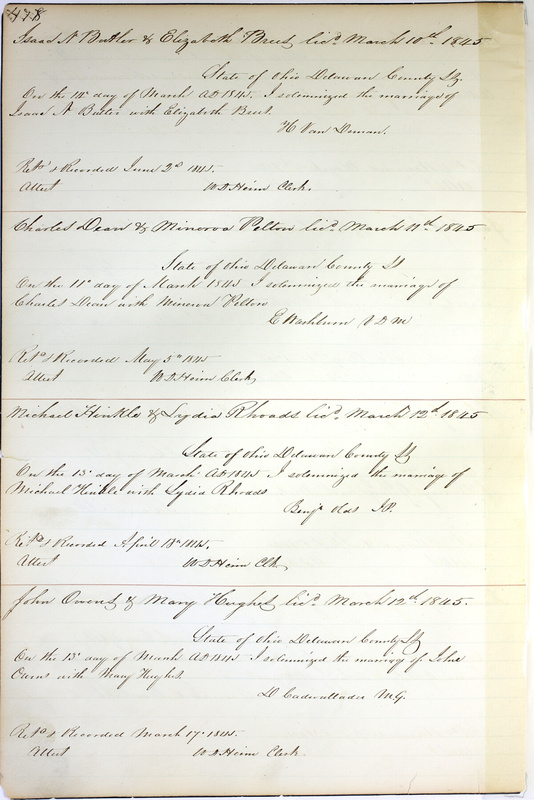 478
Isaac N Butler & Elizabeth Brust licd. March 10th. 1845
State of Ohio Delaware County Ss.
On the 12th day of March AD 1845. I solemnized the marriage of
Isaac N. Butler with Elizabeth Brust.
H Van Deman.
Retd & Recorded June 2d 1845.
Attest W D Heim Clerk.
Charles Dean & Minerva Pelton licd. March 11th. 1845
State of Ohio Delaware County Ss
On the 11th day of March 1845 I solemnized the marriage of
Charles Dean with Minerva Pelton
E Washburn V D M
Retd & Recorded May 5th 1845
Attest W D Heim Clerk
Michael Hinkle & Lydia Rhoads licd. March 12th. 1845
State of Ohio Delaware County Ss
On the 13th day of March AD 1845 I solemnized the marriage of
Michael Hinkle with Lydia Rhoads
Benjn Olds J.P.
Retd & Recorded April 18th 1845.
Attest W D Heim Clk
John Owens & Mary Hughes licd. March 12th. 1845.
State of Ohio Delaware County Ss
On the 13th day of March AD 1845 I solemnized the marriage of John
Owens with Mary Hughes.
D Cadwallader M.G.
Retd & Recorded March 17th 1845.
Attest W D Heim Clerk.